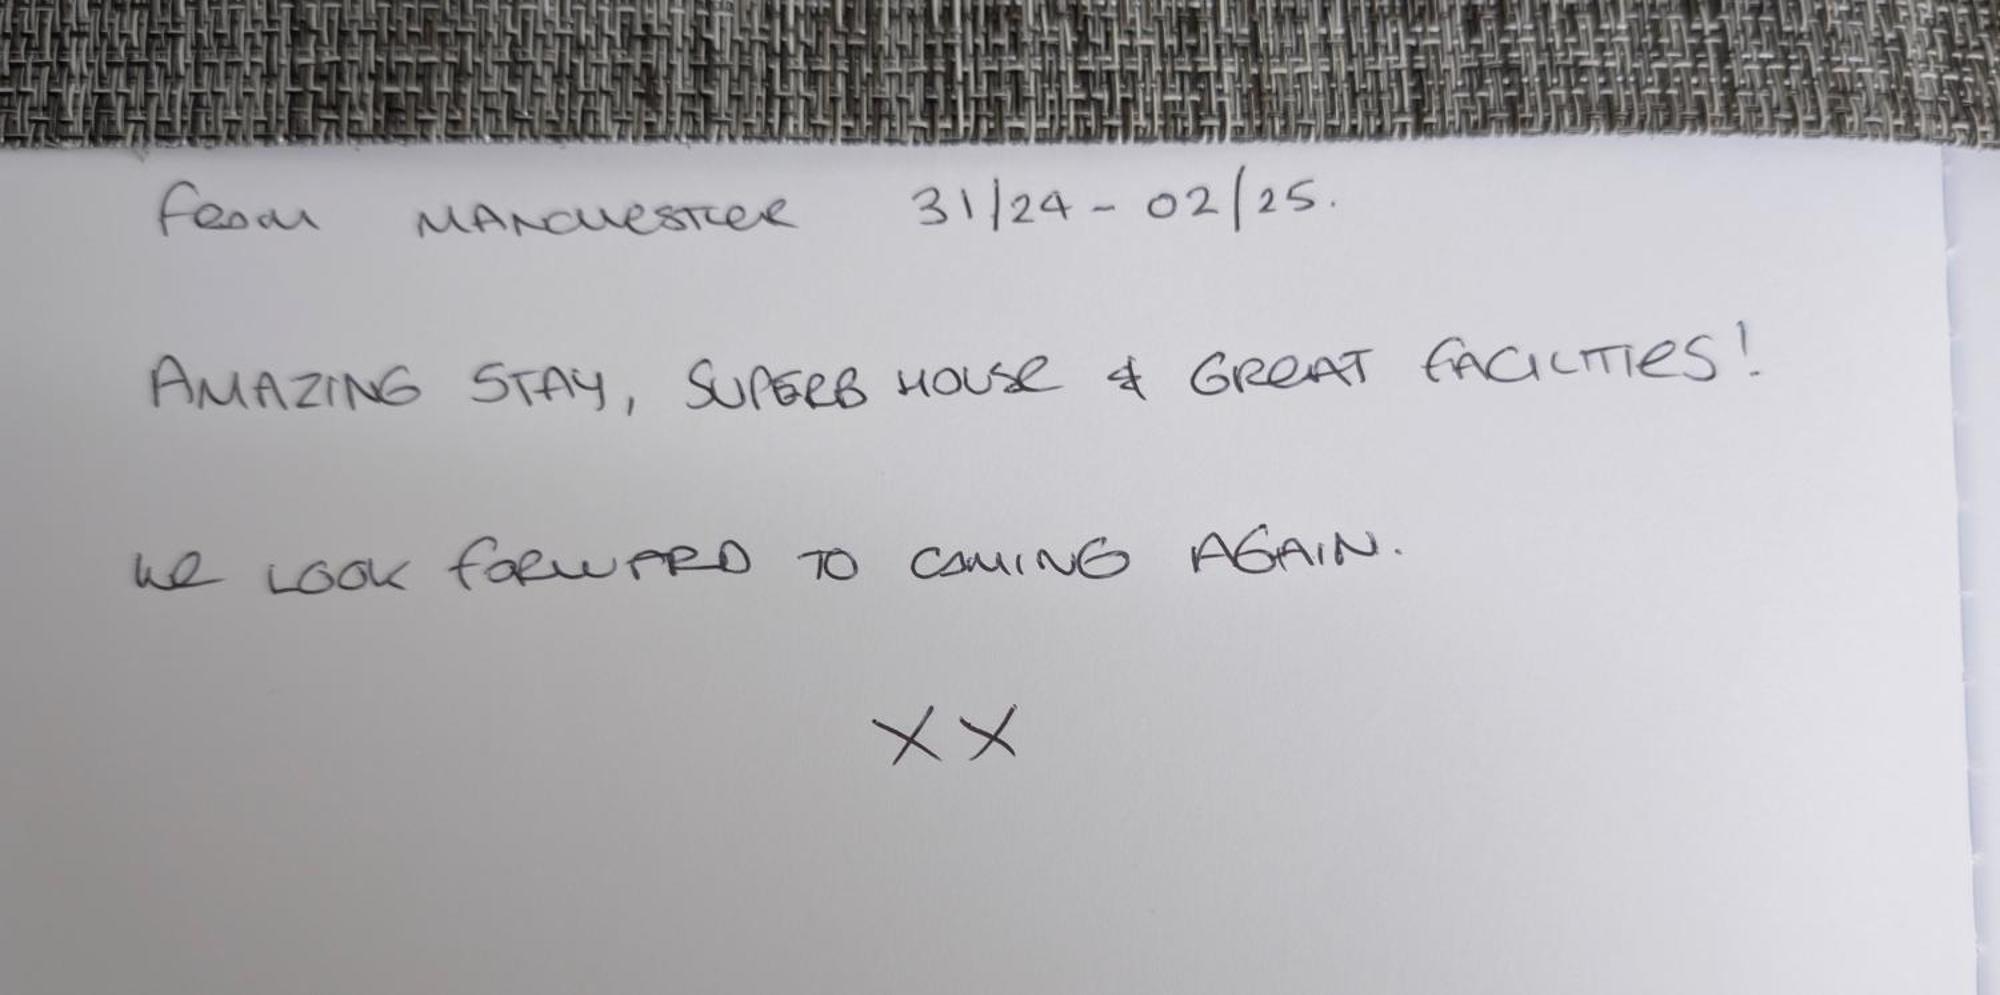 From MANCHESTER 31/24 - 02/25.
AMAZING STAY, SUPERB HOUSE & GREAT FACILITIES!
WE LOOK FORWARD TO COMING AGAIN.
XX